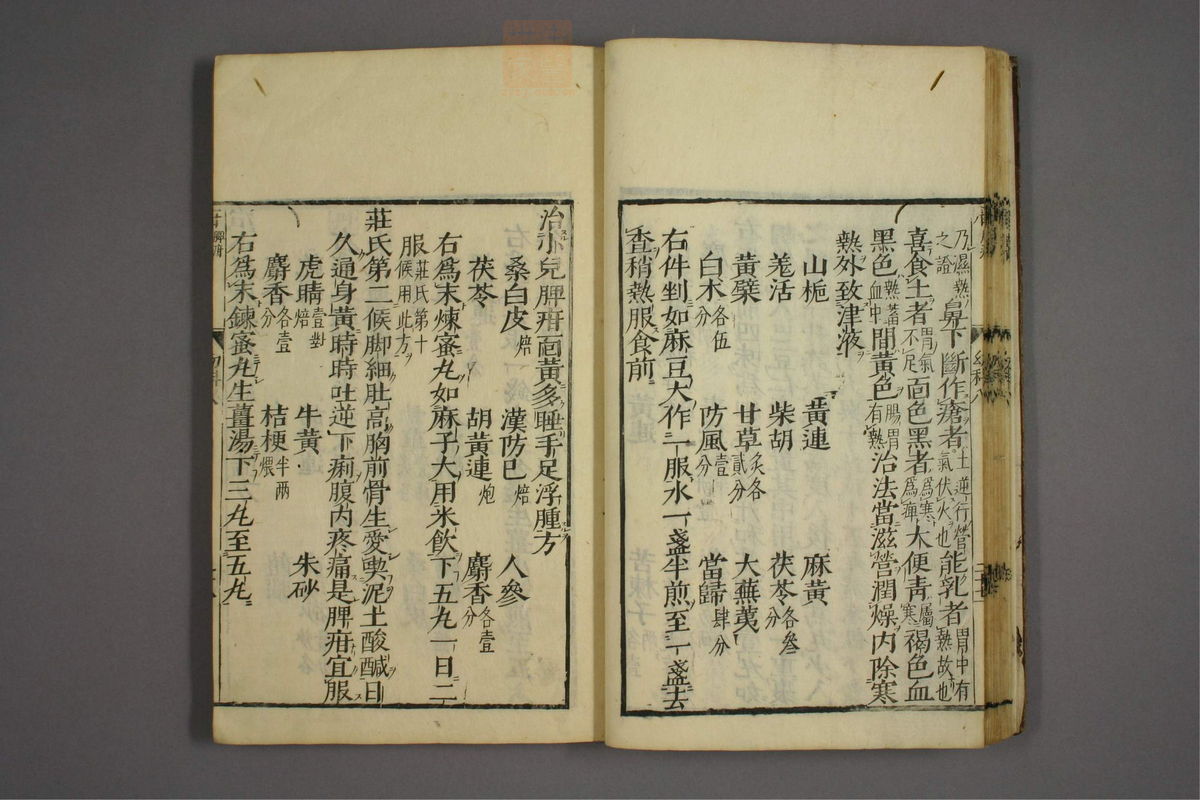 乃濕熱之證鼻下斷作瘡者土逆行營氣伏火也能乳者胃中有熱故也
喜食土者胃氣不足面色黑者為寒為痺大便青寒屬褐色血
黑色熱蓄血中間黃色腸胃有熱治法當滋營潤燥內除寒
熱外致津液
山梔 黃連 麻黃
羗活 柴胡 茯苓各叄分
黃檗 甘草炙各貳分 大蕪荑
白朮各伍分 防風壹分 當歸肆分
右件剉如麻豆大作一服水一盞半煎至一盞去
查稍熱服食前
治小兒脾疳面黃多睡手足浮腫方
桑白皮焙 漢防已焙 人參
茯苓 胡黃連炮 麝香各壹分
右為末煉蜜丸如麻子大用米飲下五九一日二
服莊氏第十候用此方
莊氏第二候脚細肚高胸前骨生愛喫泥土酸醎日
久通身黃時時吐逆下痢腹內疼痛是脾疳宜服
虎睛壹對焙 牛黃 朱砂
麝香各壹分 桔梗半兩煨
右為末鍊蜜丸生薑湯下三丸至五丸